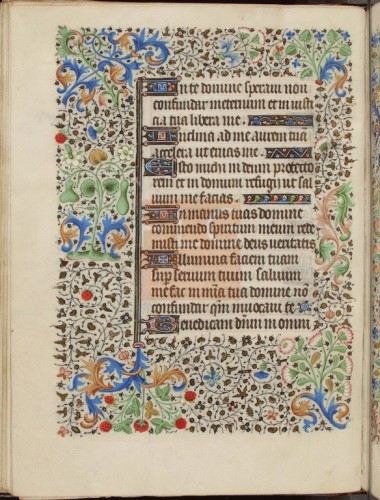 In te domine speravi non
confundar ineternum et in iusti
cia tua libera me.
Inclina ad me aurem tua
accelera ut eruas me.
Esto michi in deum protecto
rem et in domum refugii ut sal
uum me facias.
In manus tuas domine
commendo spiritum meum rede
misti me domine deus ueritatis
Illumina faciem tuam
super seruum tuum saluum
me fac in mia tua domine no
confundar qm inuocaui te
Benedicam dnm in omni